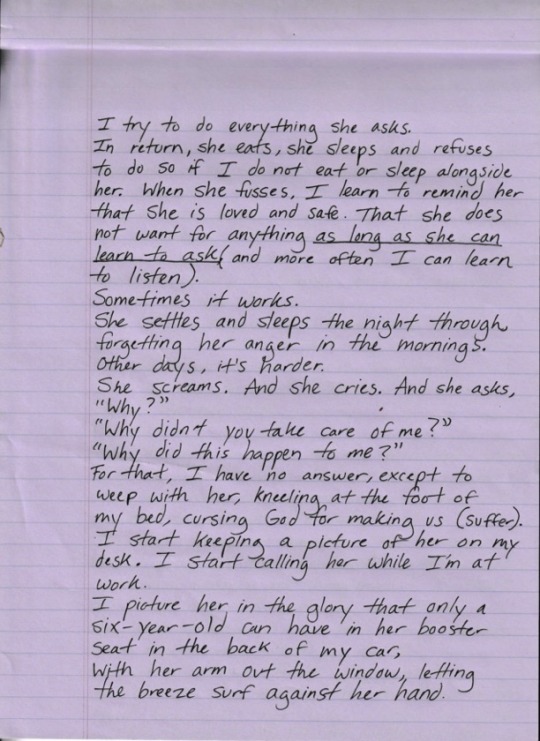 I try to do everything she asks.
In return, she eats, she sleeps and refuses
to do so if I do not eat or sleep alongside
her. When she fusses, I learn to remind her
that she is loved and safe. That she does
not want for anything as long as she can
learn to ask (and more often I can learn
to listen).
Sometimes it works.
She settles and sleeps the night through,
forgetting her anger in the mornings.
Other days, it's harder.
She screams. And she cries. And she asks,
"Why?"
"Why didn't you take care of me?"
"Why did this happen to me?"
For that, I have no answer, except to
weep with her, kneeling at the foot of
my bed, cursing God for making us (suffer).
I start keeping a picture of her on my
desk. I start calling her while I'm at
work.
I picture her in the glory that only a
six-year-old can have in her booster
seat in the back of my car,
With her arm out the window, letting
the breeze surf against her hand.